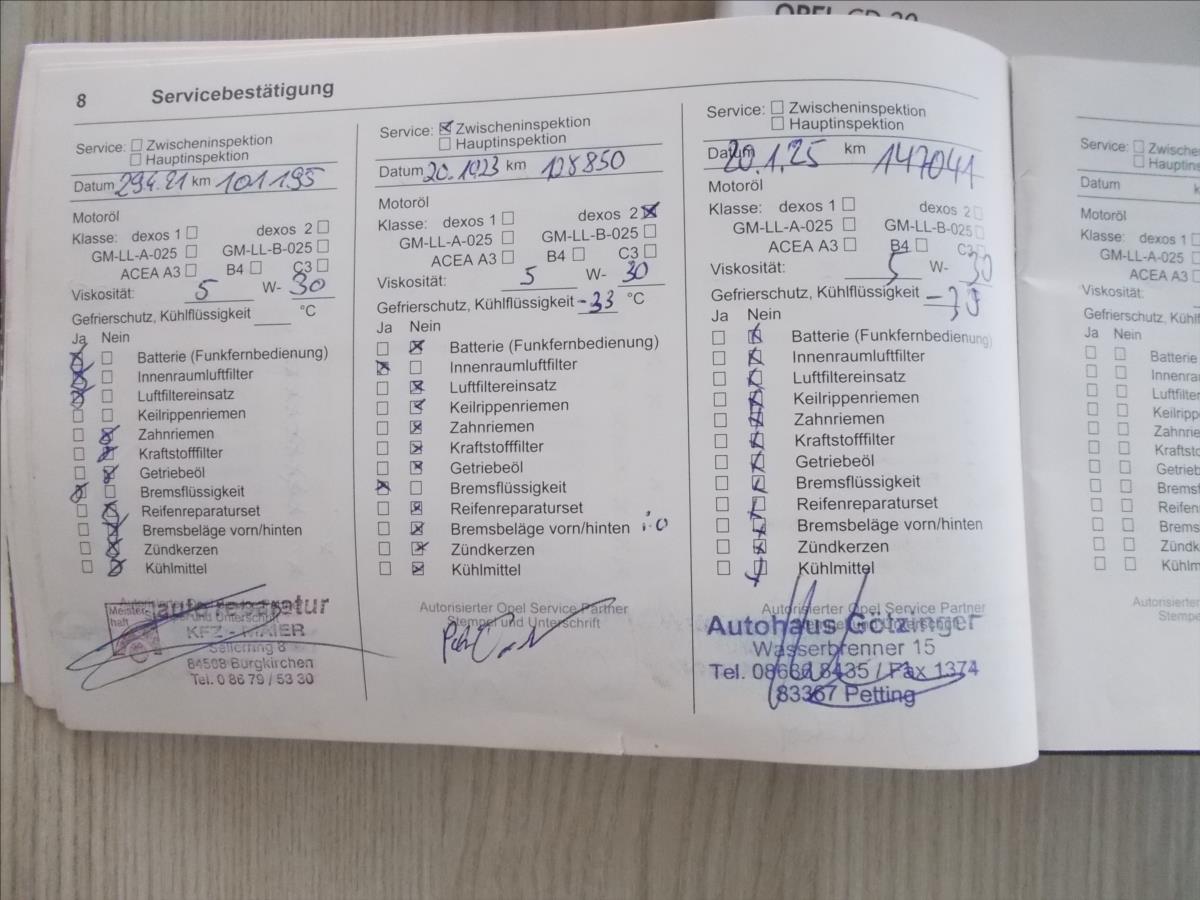 OPEL CD 30
8 Servicebestätigung
Service: Zwischeninspektion
Hauptinspektion
Datum 29.4.21 km 101195
Motoröl
Klasse: dexos 1 dexos 2
GM-LL-A-025 GM-LL-B-025
ACEA A3 B4 C3
Viskosität: 5 W- 30
Gefrierschutz, Kühlflüssigkeit °C
Ja Nein
Batterie (Funkfernbedienung)
Innenraumluftfilter
Luftfiltereinsatz
Keilrippenriemen
Zahnriemen
Kraftstofffilter
Getriebeöl
Bremsflüssigkeit
Reifenreparaturset
Bremsbeläge vorn/hinten
Zündkerzen
Kühlmittel
Meister
haft
autoreparatur
KFZ - MAIER
84508 Burgkirchen
Tel. 0 86 79 / 53 30
Service: Zwischeninspektion
Hauptinspektion
Datum 20.10.23 km 128850
Motoröl
Klasse: dexos 1 dexos 2
GM-LL-A-025 GM-LL-B-025
ACEA A3 B4 C3
Viskosität: 5 W- 30
Gefrierschutz, Kühlflüssigkeit -33 °C
Ja Nein
Batterie (Funkfernbedienung)
Innenraumluftfilter
Luftfiltereinsatz
Keilrippenriemen
Zahnriemen
Kraftstofffilter
Getriebeöl
Bremsflüssigkeit
Reifenreparaturset
Bremsbeläge vorn/hinten i.o
Zündkerzen
Kühlmittel
Autorisierter Opel Service Partner
Stempel und Unterschrift
Service: Zwischeninspektion
Hauptinspektion
Datum 20.1.25 km 147041
Motoröl
Klasse: dexos 1 dexos 2
GM-LL-A-025 GM-LL-B-025
ACEA A3 B4 C3
Viskosität: 5 W- 30
Gefrierschutz, Kühlflüssigkeit
Ja Nein
Batterie (Funkfernbedienung)
Innenraumluftfilter
Luftfiltereinsatz
Keilrippenriemen
Zahnriemen
Kraftstofffilter
Getriebeöl
Bremsflüssigkeit
Reifenreparaturset
Bremsbeläge vorn/hinten
Zündkerzen
Kühlmittel
Autorisierter Opel Service Partner
Autohaus Götzinger
Wasserbrenner 15
Tel. 08686 8435 / Fax 1374
83367 Petting
Service: Zwischeni
Hauptinsp
Datum k
Motoröl
Klasse: dexos 1
GM-LL-A-025
ACEA A3
Viskosität:
Gefrierschutz, Kühlf
Ja Nein
Batterie
Innenra
Luftfilter
Keilripp
Zahnrie
Kraftsto
Getrieb
Bremsf
Reifen
Brems
Zündk
Kühlm
Autorisierter
Stempe